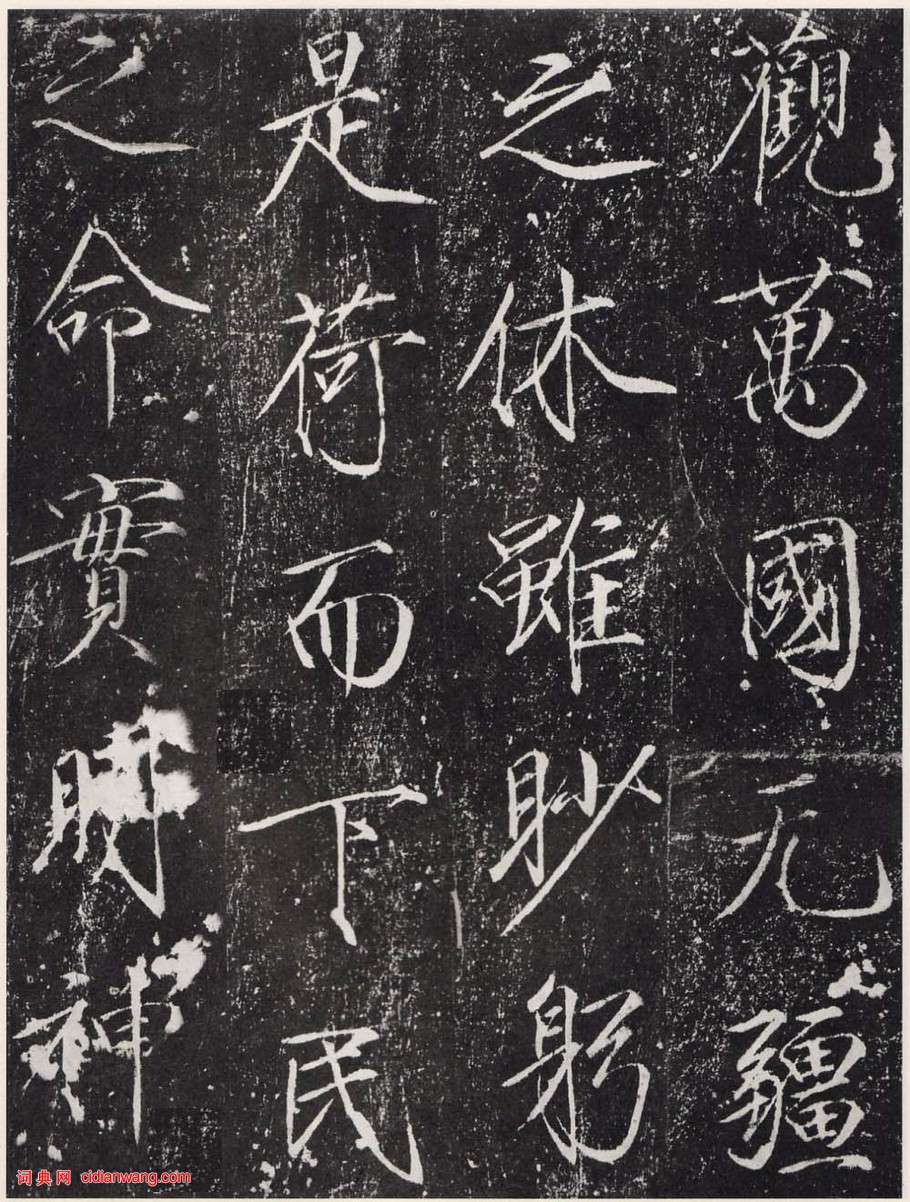 觀萬國无疆
之休雖眇躬
是荷而下民
之命實眀神
词典网 cidianwang.com